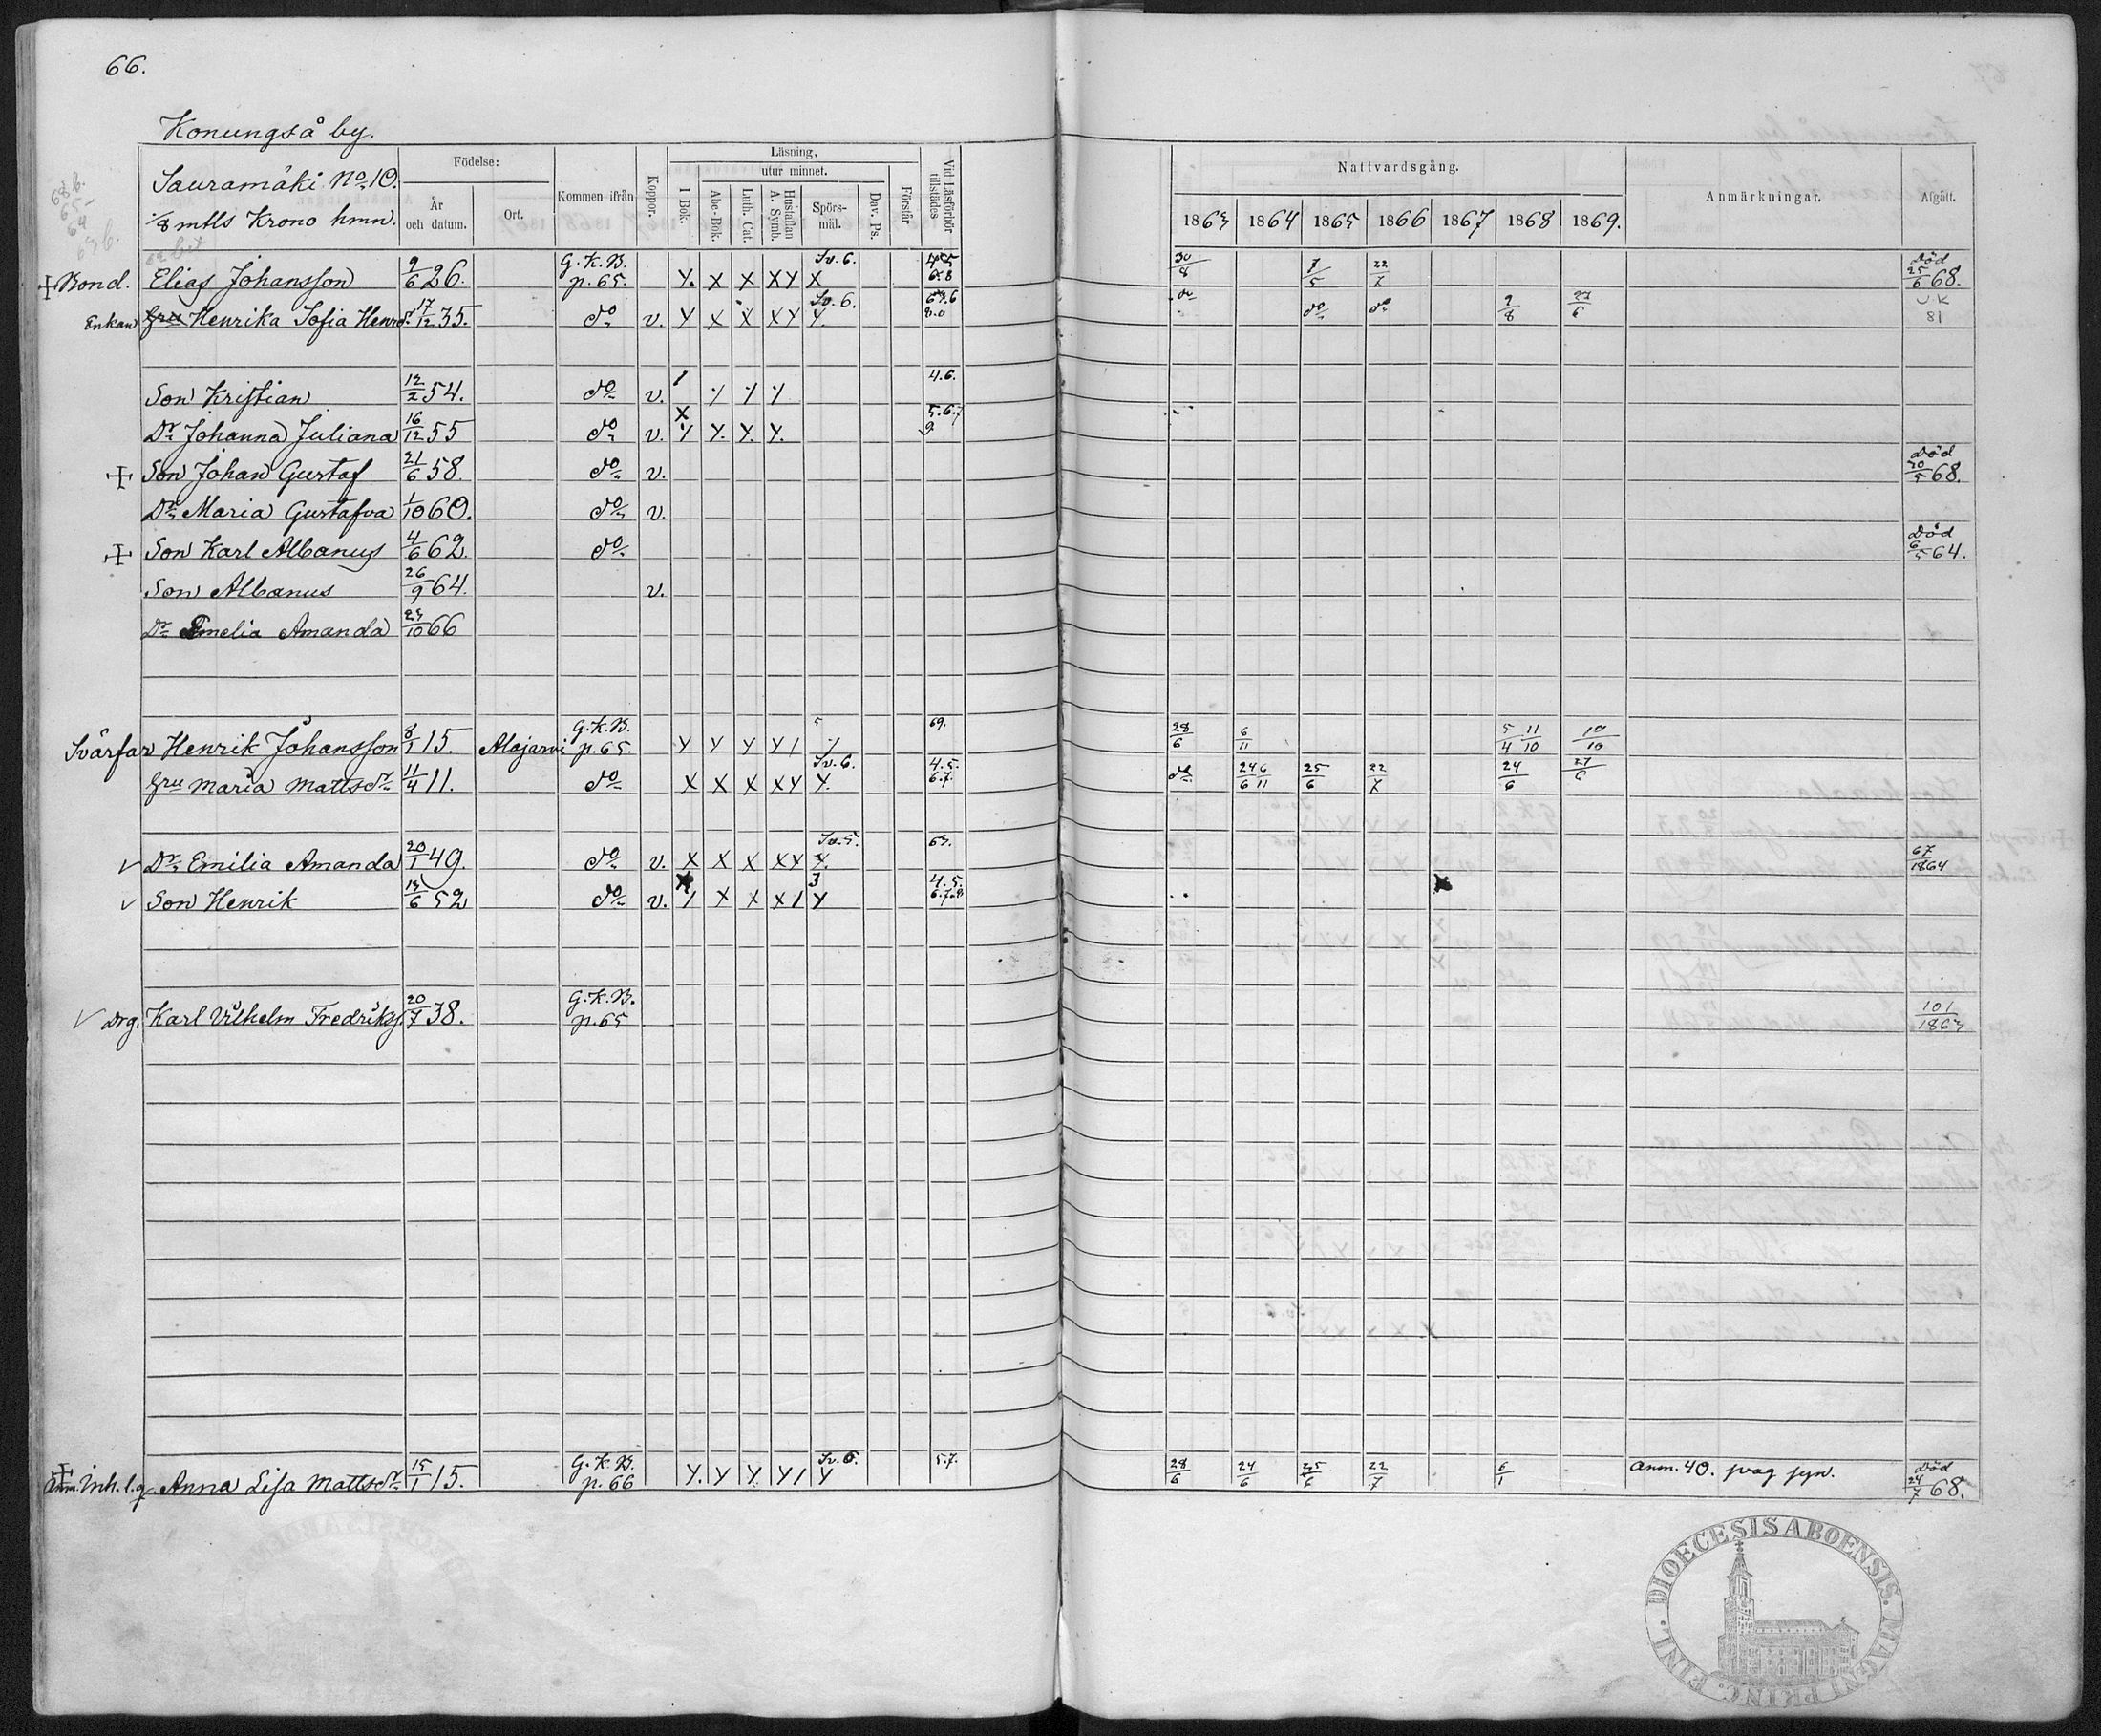 66.
Konungså by.
Sauramäki No 10.
1/8 mtls Krono hmn.
Födelse:
År och datum.
Ort.
Kommen ifrån
Koppor.
Läsning.
utur minnet.
I Bok.
Abc-Bok.
Luth. Cat.
Hustaflan A. Symb.
Spörsmål.
Dav. Ps.
Förstår
Vid Läsförhör tillstädes
Nattvardsgång.
1863 1864 1865 1866 1867 1868 1869.
Anmärkningar.
Afgått.
Bond. Elias Johansson 9/6 26. G.K.B. p. 65. Y. X X XY X Sv. 6. 30/8 7/5 22/7 Död 25/6 68.
Enkan Hru Henrika Sofia Henrdr 17/12 35. do v. Y X X XY Y. Sv. 6. do do do 9/8 27/6 UK 81
Son Kristian 12/2 54. do v. 4.6.
Dr Johanna Juliana 16/12 55 do v. Y. Y. Y. 5.6.7 9
Son Johan Gustaf 21/6 58. do v. Död 20/5 68.
Dr Maria Gustafva 1/10 60. do v.
Son Karl Albanus 4/6 62. do Död 6/5 64.
Son Albanus 26/9 64. v.
Dr Emelia Amanda 23/10 66
Svärfar Henrik Johansson 8/1 15. Alajarvi G.K.B. p. 65. Y Y Y Y/ 5 69. 28/6 6/11 5/4 11/10 10/10
Hru Maria Mattsdr 11/4 11. do X X X XY Y. Sv. 6. 4.5. 6.7. do 24/6 6/11 25/6 22/7 24/6 27/6
Dr Emilia Amanda 20/1 49. do v. X X X XY Y. Sv. 5. 63. 67/1864
Son Henrik 13/6 52 do v. X X X/ Y 3 4.5. 6.7.8
Drg. Karl Vilhelm Fredrikss. 20/7 38. G.K.B. p. 65 101/1863
Anm. Inh. l.q. Anna Lisa Mattsdr 15/1 15. G.K.B. p. 66 Y. Y Y Y/ Y Sv. 6. 5.7. 28/6 24/6 25/6 22/7 6/1 Anm. 40. svag syn. Död 24/7 68.
DIOECESIS ABOENSIS. MAGNI PRINC. FINL.